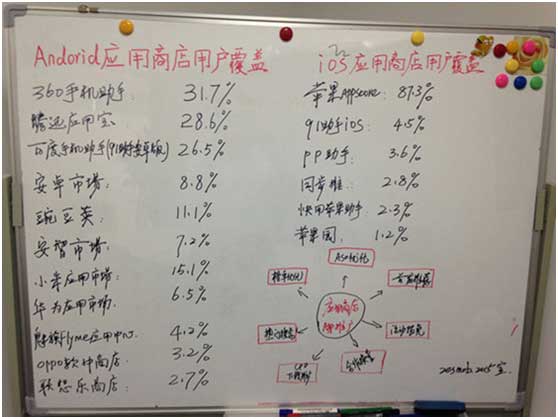 Andorid应用商店用户覆盖
360手机助手: 31.7%
腾迅应用宝 28.6%
百度手机助手(91助手安卓版) 26.5%
安卓市场: 8.8%
豌豆荚: 11.1%
安智市场: 7.2%
小米应用市场: 15.1%
华为应用市场: 6.5%
魅族Flyme应用中心: 4.2%
OPPO软件商店: 3.2%
联想乐商店: 2.7%
iOS应用商店用户覆盖
苹果Appstore: 87.3%
91助手iOS: 4.5%
PP助手: 3.6%
同步推: 2.8%
快用苹果助手: 2.3%
苹果园: 1.2%
ASO优化
首发推荐
应用商店